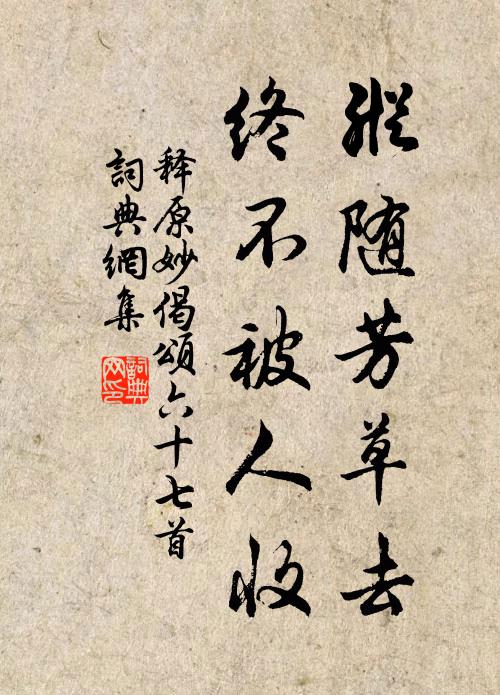 縱随芳草去
終不被人收
释原妙偈頌六十七首
詞典網集
詞典
网印